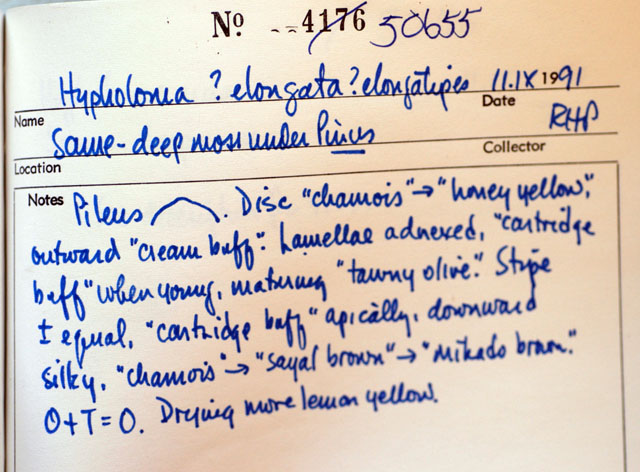 No --4176 50655
Hypholoma ? elongata ? elongatipes 11.IX 1991
Name Date
Same - deep moss under Pinus RHP
Location Collector
Notes Pileus . Disc "chamois" → "honey yellow",
outward "cream buff". Lamellae adnexed, "cartridge
buff" when young, maturing "tawny olive." Stipe
± equal, "cartridge buff" apically, downward
silky, "chamois" → "sayal brown" → "mikado brown."
O + T = O. Drying more lemon yellow.